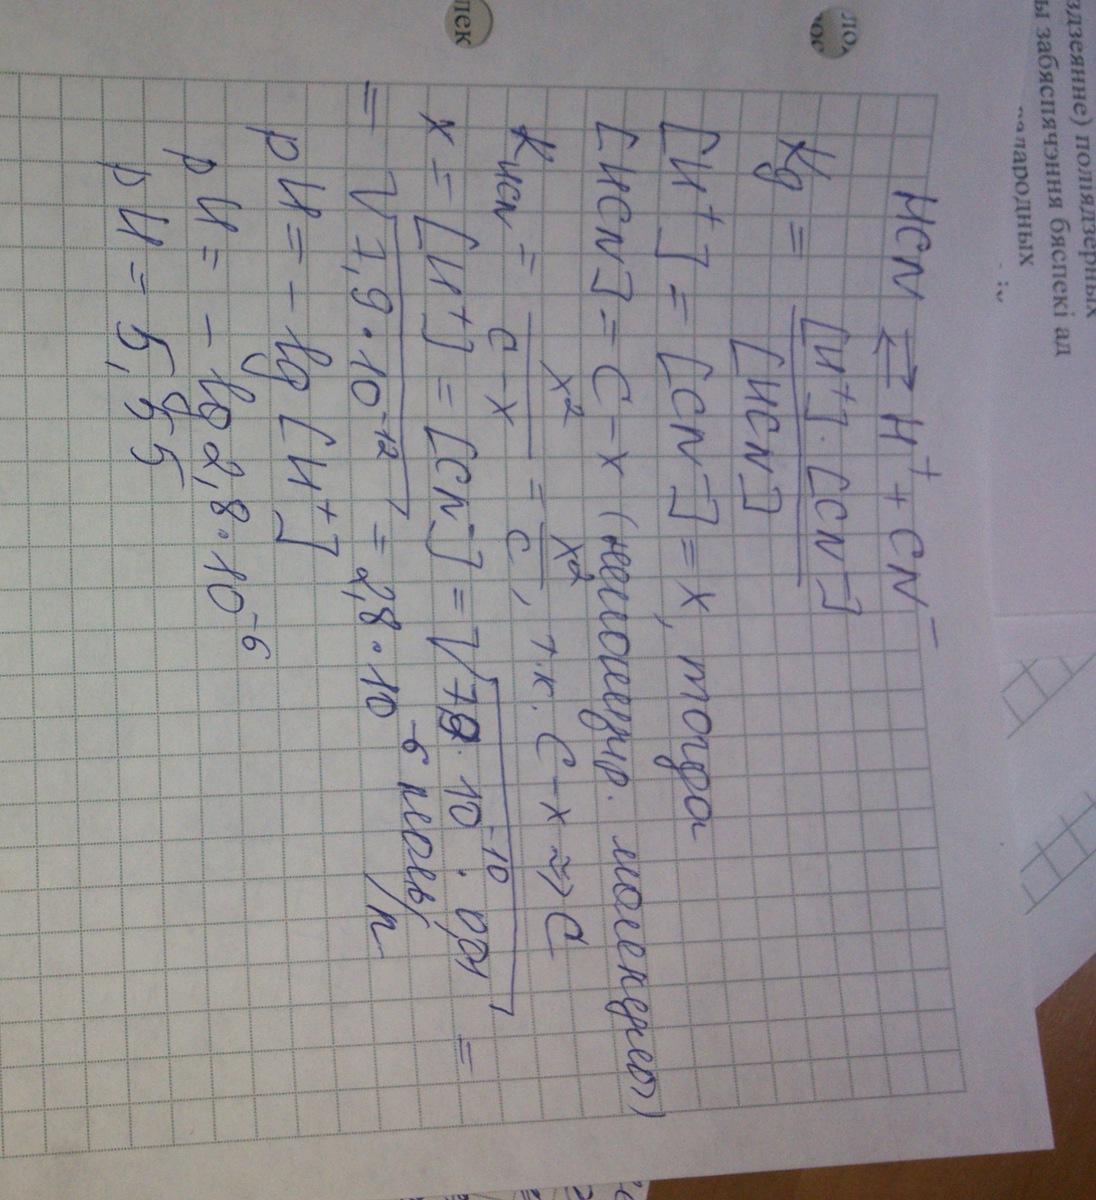 здзеянне) поліядзерных
ы забяспячэння бяспекі ад
народных
лек
HCN ⇄ H⁺ + CN⁻
Kg = [H⁺]·[CN⁻] / [HCN]
[H⁺] = [CN⁻] = x, тогда
[HCN] = C − x (неионизир. молекулы)
K HCN = x² / C − x = x² / C, т.к. C − x ≈> C
x = [H⁺] = [CN⁻] = √7,9·10⁻¹⁰ · 0,01 =
= √7,9·10⁻¹² = 2,8·10⁻⁶ моль/л
pH = − lg [H⁺]
pH = − lg 2,8·10⁻⁶
pH = 5,55